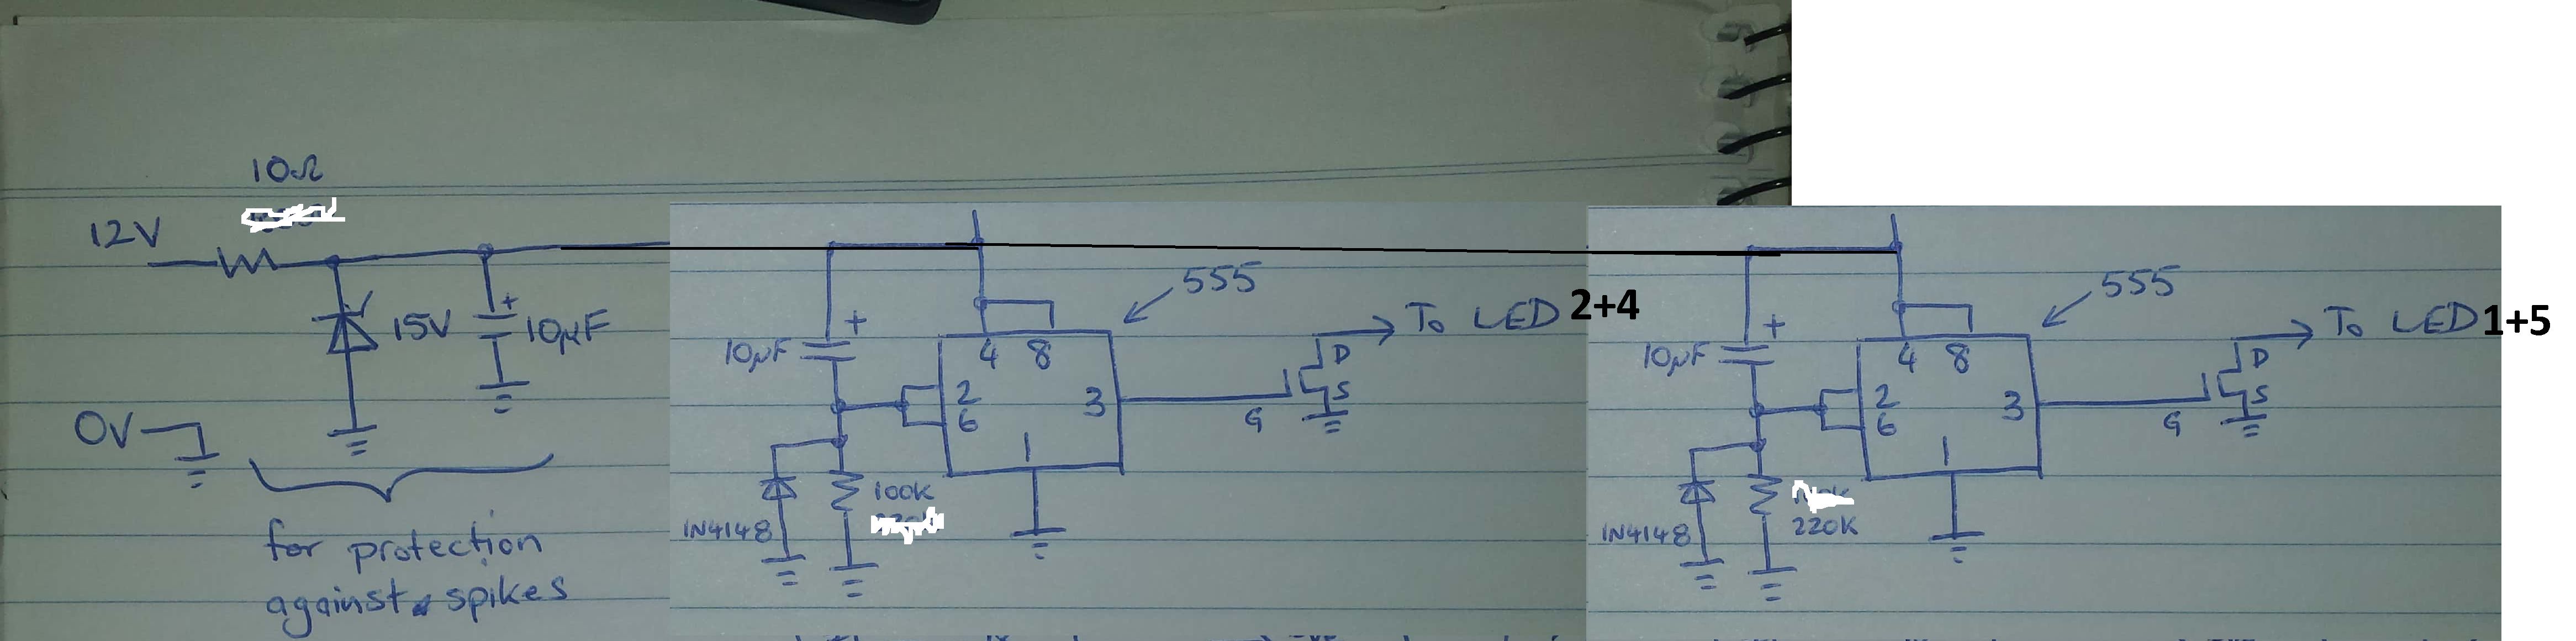 10Ω
12V
15V
10µF
0V
for protection
against spikes
555
To LED 2+4
10µF
+
4 8
2
6
3
1
D
S
G
100K
1N4148
555
To LED 1+5
10µF
+
4 8
2
6
3
1
D
S
G
220K
1N4148